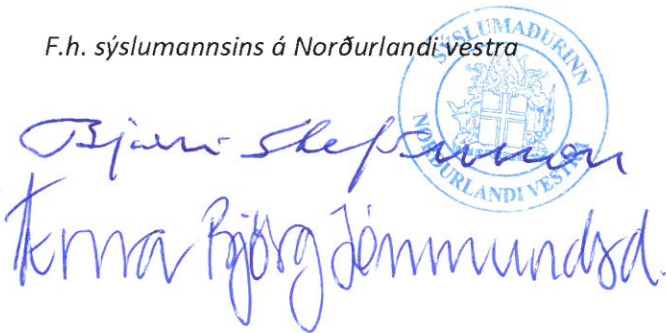 F.h. sýslumannsins á Norðurlandi vestra
SÝSLUMAÐURINN
NORÐURLANDI VESTRA
Bjarni Stefánsson
Erna Björg Jónmundsd.